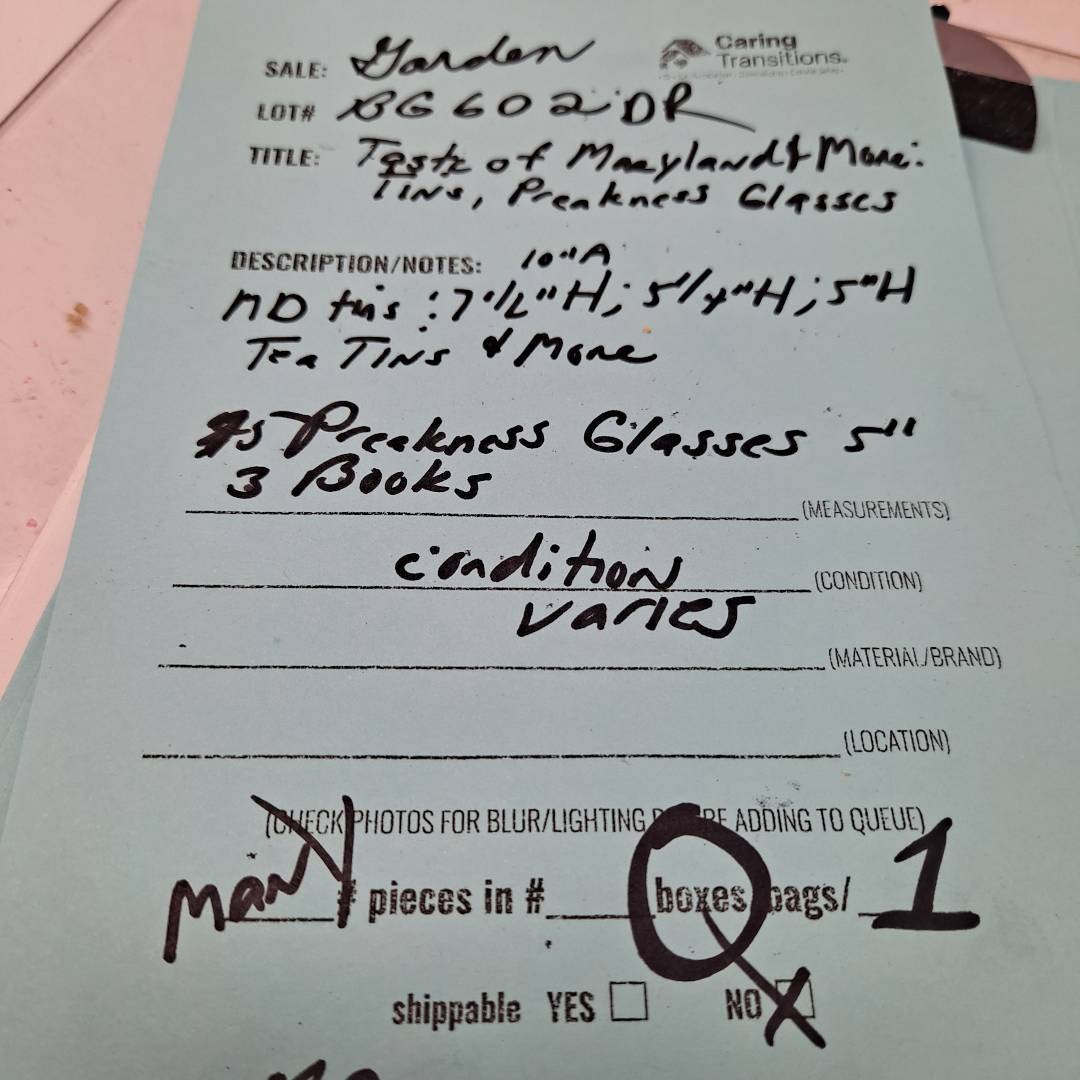 Caring
Transitions®
SALE: Garden
LOT# BG602DR
TITLE: Taste of Maryland & More:
Tins, Preakness Glasses
DESCRIPTION/NOTES:
MD tins : 7 1/2" H; 5 1/4" H; 5" H
Tea Tins & More
5 Preakness Glasses 5"
3 Books
(MEASUREMENTS)
condition
(CONDITION)
varies
(MATERIAL/BRAND)
(LOCATION)
(CHECK PHOTOS FOR BLUR/LIGHTING BEFORE ADDING TO QUEUE)
Many # pieces in # boxes bags/ 1
shippable YES NO X